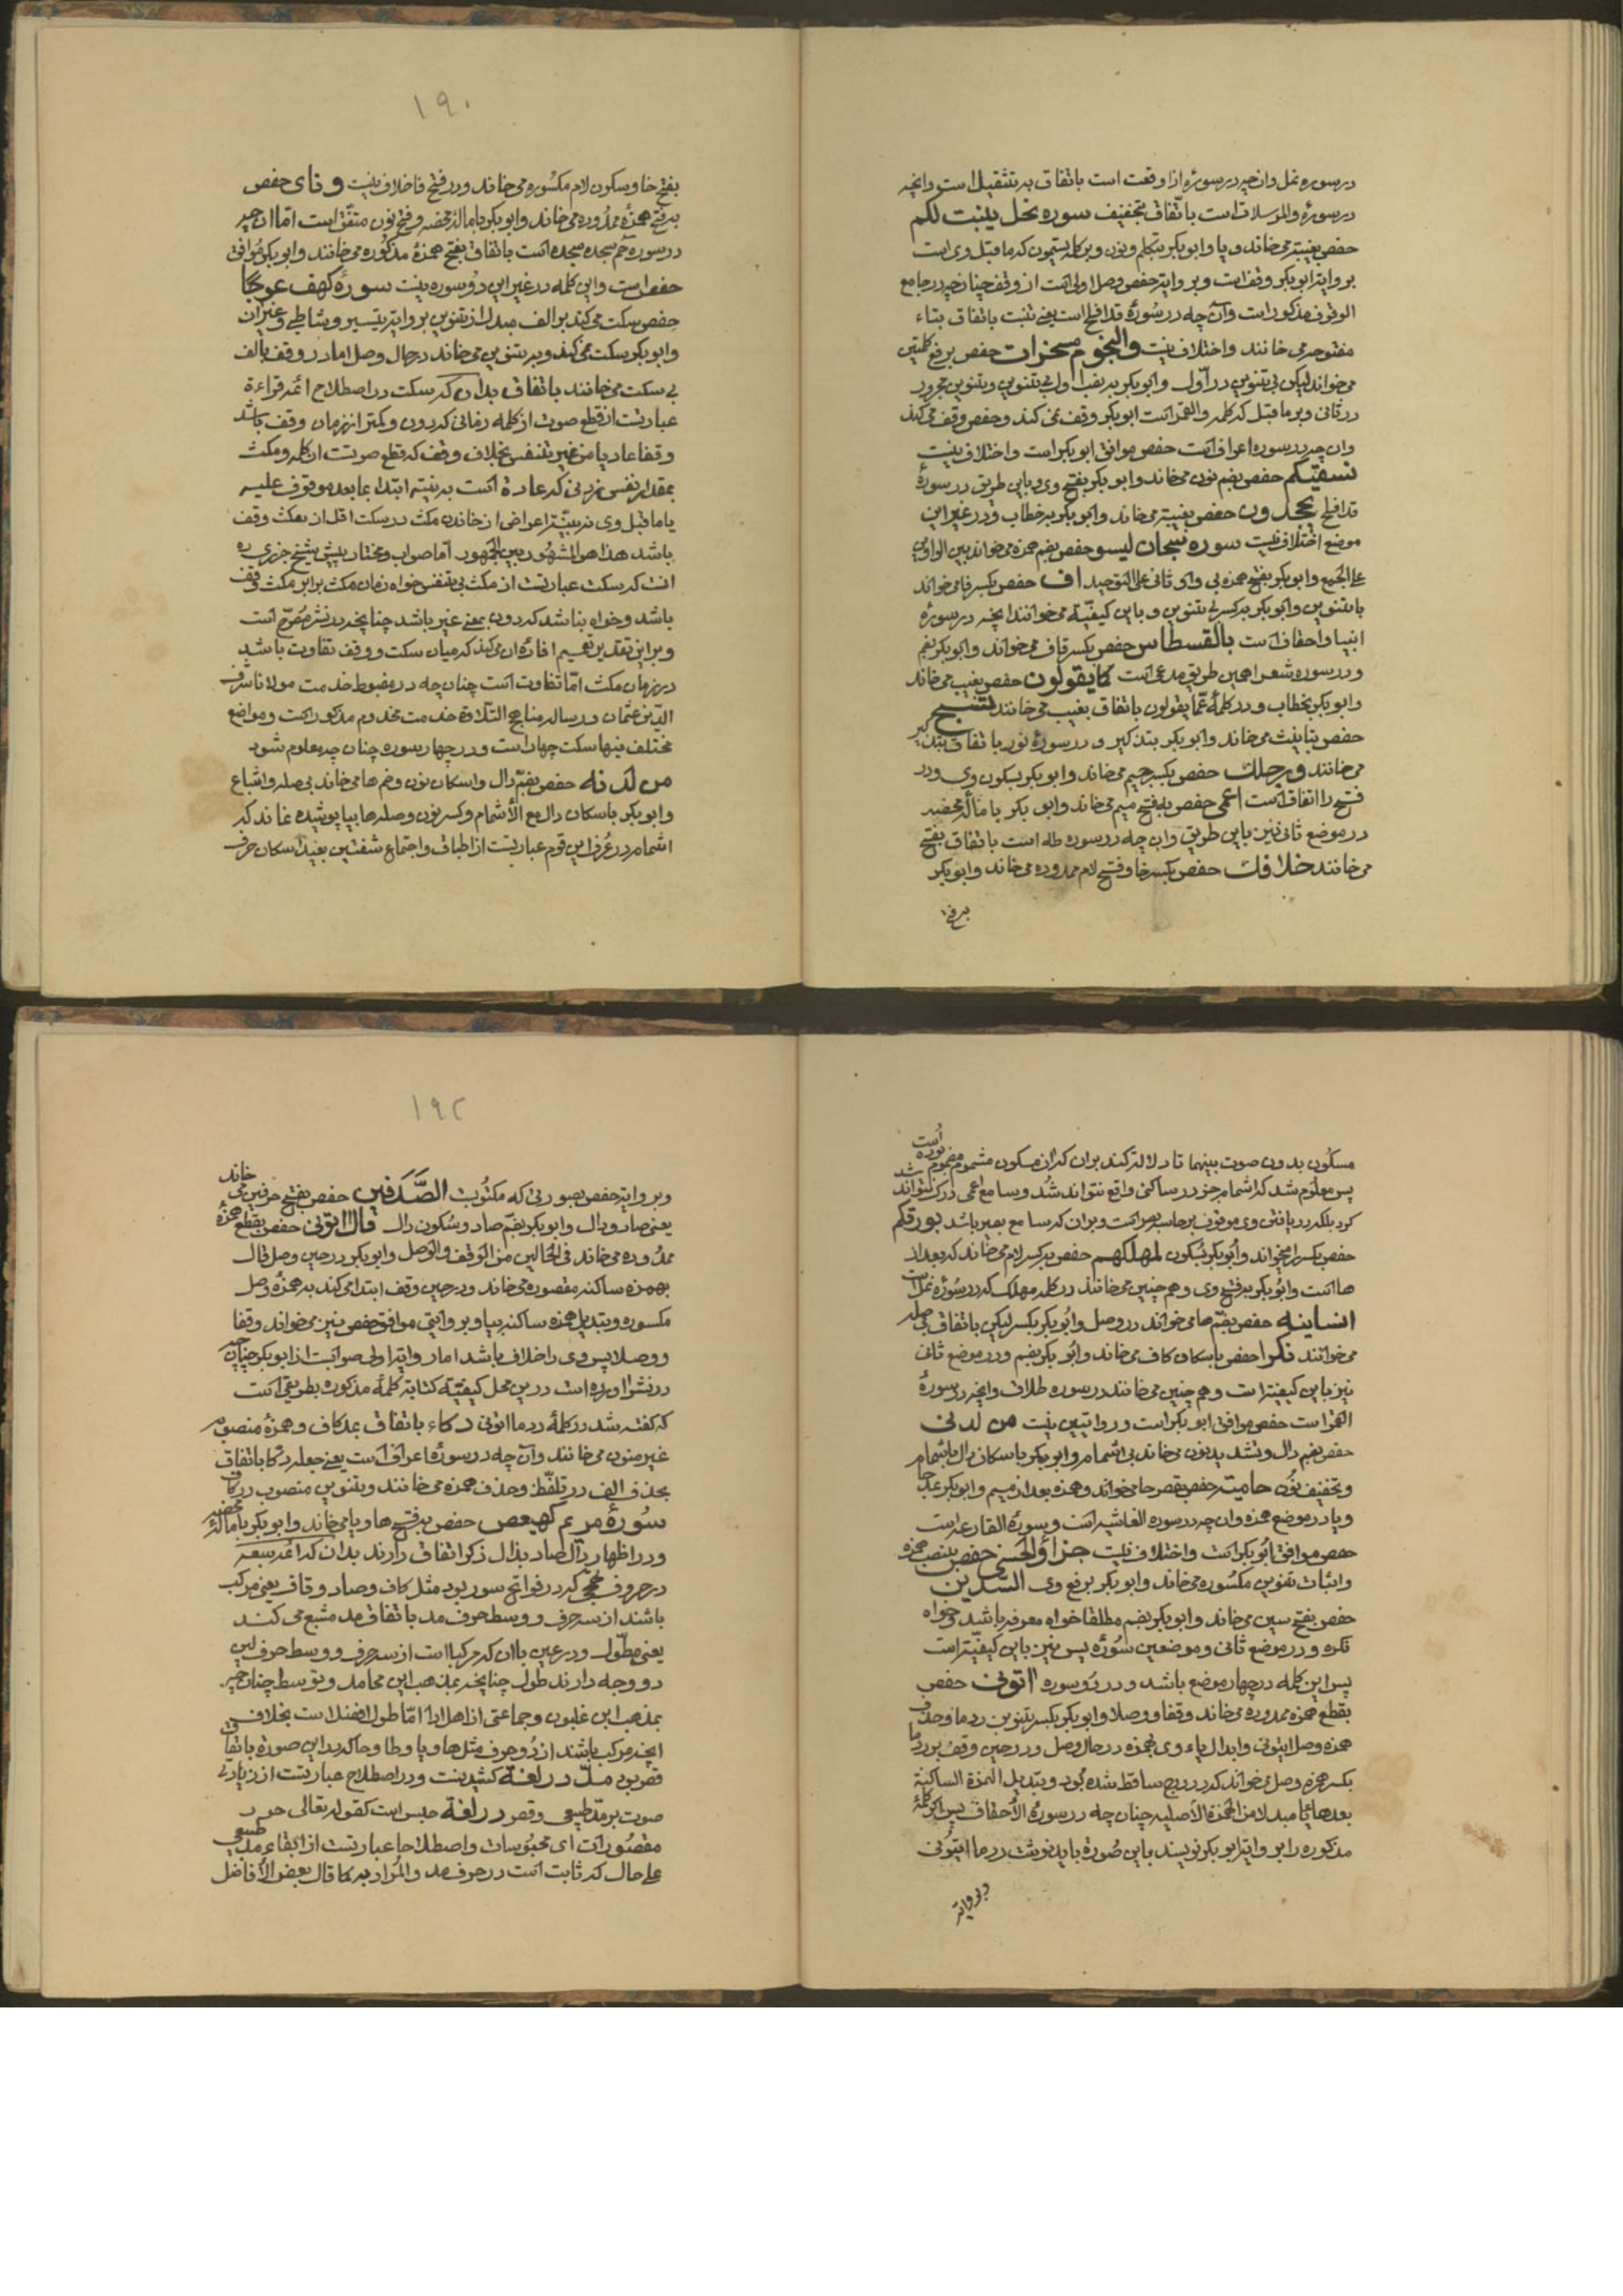 در سوره نمل وان چه در سورهٔ اذا وقعت است باتفاق به تثقیل است وانچه
در سورهٔ والمرسلات است باتفاق بتخفیف سوره نحل ینبت لکم
حفص بغیبته می خاند و یا وابوبکر بتکلم ونون وبر کلمه یسیمون که ما قبل وی است
بروایة ابوبکر وقفست وبروایة حفص وصل اولی است از وقف چنانچه در جامع
الوقوف مذکور است وآن چه در سورهٔ قد افلح است یعنی تنبت باتفاق بتاء
مفتوحه می خانند واختلاف نیست والنجوم مسخرات حفص برفع کلمتین
می خواند لیکن بی تنوین در اول وابوبکر بنصب اول بی تنوین وبتنوین مجرور
در ثانی وبر ما قبل که کلمه والقمر است ابوبکر وقف نمی کند وحفص وقف می کند
وان چه در سوره اعراف است حفص موافق ابوبکر است واختلاف نیست
نسقیکم حفص بضم نون می خاند وابوبکر بفتح وی وباین طریق در سورهٔ
قد افلح یجحدون حفص بغیبته می خاند وابوبکر به خطاب ودر غیر این
موضع اختلاف نیست سوره سبحان لیسوء حفص بضم همزه می خواند بین الواوین
علی الجمع وابوبکر بفتح همزه بی واو ثانی علی التوحید اف حفص بکسر فا می خواند
با تنوین وابوبکر بکسر بی تنوین و باین کیفیة می خوانند انچه در سورهٔ
انبیا واحقاف است بالقسطاس حفص بکسر قاف می خواند وابوبکر بضم
ودر سوره شعرا همین طریق مدعی است کما یقولون حفص بغیب می خاند
وابوبکر بخطاب ودر کلمهٔ عما یقولون باتفاق بغیب می خانند تسبح
حفص بتانیث می خاند وابوبکر بتذکیر و در سورهٔ نور باتفاق بتذکیر
می خانند ورجلک حفص بکسر جیم می خاند وابوبکر بسکون وی ودر
فتح را اتفاق است اعمی حفص به فتح میم می خاند وابو بکر باماله محضه
در موضع ثانی نیز باین طریق وان چه در سوره طه است باتفاق بفتح
می خانند خلافک حفص بکسر خا وفتح لام ممدوده می خاند وابوبکر
۱۹۰
بفتح خا وسکون لام مکسوره می خاند ودر فتح فا خلاف نیست ونای حفص
به فتح همزهٔ ممدوده می خاند وابوبکر باماله محضه وفتح نون متفق است اما ان چه
در سوره حم سجده است باتفاق بفتح همزهٔ مذکوره می خانند وابوبکر موافق
حفص است واین کلمه در غیر این دو سوره نیست سورهٔ کهف عوجا
حفص سکت می کند بر الف مبدله از تنوین بروایة تیسیر وشاطبی وغیران
وابوبکر سکت نمی کند وبه تنوین می خاند در حال وصل اما در وقف بالف
بی سکت می خانند باتفاق بدان که سکت در اصطلاح ائمه قراءة
عبارتست از قطع صوت از کلمه زمانی که درون وکمتر از زمان وقف باشد
وقفا عادیا من غیر تنفس بخلاف وقف که قطع صوتست از کلمه ومکث
بمقدار نفس زدنی که عادة است به نیت ابتدا بما بعد موقوف علیه
یا ما قبل وی نه به نیة اعراض از خاندن مکث در سکت اقل از مکث وقف
باشد هذا هو المشهور بین الجمهور اما صواب ومختار پیش شیخ جزری ره
انست که سکت عبارتست از مکث بی تنفس خواه زمان مکث برابر مکث وقف
باشد وخواه نباشد که درون بمعنی غیر باشد چنانچه در نشر مصرح است
وبراین تقدیر تعمیم افاده ان می کند که میان سکت ووقف تفاوت باشد
در زمان مکث اما تفاوت است چنان چه در مضبوط خدمت مولانا شرف
الدین عثمان ورساله مناهج التلاوة خدمت مخدوم مذکور است ومواضع
مختلف فیها سکت چهار است ودر چهار سوره چنان چه معلوم شود
من لدنه حفص بضم دال واسکان نون وضم ها می خاند بی صله واشباع
وابوبکر باسکان دال مع الاشمام وکسر نون وصله ها بیا پوشیده نماند که
اشمام در عرف این قوم عبارتست از اطباق واجتماع شفتین بعید اسکان حرف
مسکون بدون صوت بینهما تا دلالة کند بران که ان مسکون مشموم مضموم بوده است
پس معلوم شد که اشمام جز در ساکن واقع نتواند شد وسامع اعمی درک نتواند
کرد بلکه دریافتن وی موقوف بر حاسه بصر است وبران که سامع بصیر باشد بورقکم
حفص بکسر را می خواند وابوبکر بسکون لمهلکهم حفص به کسر لام می خاند که بعد از
ها است وابوبکر به فتح وی وهم چنین می خانند در کلمه مهلک که در سورهٔ نمل است
انسانیه حفص بضم ها می خواند در وصل وابوبکر بکسر لیکن باتفاق بی صله
می خوانند نکرا حفص باسکان کاف می خاند وابوبکر بضم ودر موضع ثانی
نیز باین کیفیة است وهم چنین می خانند در سوره طلاق وانچه در سورهٔ
القمر است حفص موافق ابوبکر است وروایتین نیست من لدنی
حفص بضم دال وتشدید نون می خاند بی اشمام وابوبکر باسکان دال باشمام
وتخفیف نون حامیة حفص بقصر حا می خواند وهمزه بعد از میم وابوبکر بمد حا
ویا در موضع همزه وان چه در سوره الغاشیه است وسوره القارعه است
حفص موافق ابوبکر است واختلاف نیست جزاء الحسنی حفص بنصب همزه
واثبات تنوین مکسوره می خاند وابوبکر برفع وی السدین
حفص بفتح سین می خاند وابوبکر بضم مطلقا خواه معرفه باشد وخواه
نکره ودر موضع ثانی وموضعین سورهٔ یس نیز باین کیفیة است
پس این کلمه در چهار موضع باشد ودر دو سوره اتونی حفص
بقطع همزه ممدوده می خاند وقفا ووصلا وابوبکر بکسر تنوین ردما وحذف
همزه وصل ایتونی وابدال یاء وی بهمزه در حال وصل ودر حین وقف بر ردما
بکسر همزه وصل می خواند که در درج ساقط شده بود وبتبدیل الهمزة الساکنة
بعدها یا مبدلا من الهمزة الاصلیه چنان چه در سورهٔ الاحقاف پس اگر کلمهٔ
مذکوره را بروایة ابوبکر نویسند باین صورة باید نوشت ردما ایتونی
وبروایة
۱۹۲
وبروایة حفص بصورتی که مکتوبست الصدفین حفص بفتح حرفین می خاند
یعنی صاد ودال وابوبکر بضم صاد وسکون دال قال اتونی حفص بقطع همزهٔ
ممدوده می خاند فی الحالین من الوقف والوصل وابوبکر در حین وصل قال
بهمزه ساکنه مقصوره می خاند ودر حین وقف ابتدا می کند به همزه وصل
مکسوره وبتبدیل همزه ساکنه بیا وبروایتی موافق حفص نیز می خواند وقفا
ووصلا پس وی را خلاف باشد اما روایة اولی صوابست از ابوبکر چنان چه
در نشر اورده است درین محل کیفیة کتابة کلمهٔ مذکوره بطریقی است
که گفته شد در کلمهٔ ردما اتونی دکاء باتفاق بمد کاف وهمزهٔ منصوبه
غیر منون می خانند وآن چه در سورهٔ اعراف است یعنی جعله دکا باتفاق
بحذف الف در تلفظ وحذف همزه می خانند وبتنوین منصوب در کاف
سورهٔ مریم کهیعص حفص به فتح ها ویا می خاند وابوبکر بامالهٔ محضه
ودر اظهار دال صاد بذال ذکر اتفاق دارند بدان که ائمه سبعه
در حروف تهجی که در فواتح سور بود مثل کاف وصاد وقاف یعنی مرکب
باشند از سه حرف ووسط حرف مد باتفاق مد مشبع می کنند
یعنی مطول ودر عین باان که مرکب است از سه حرف ووسط حرف لین
دو وجه دارند طول چنانچه بمذهب ابن مجاهد وتوسط چنان چه
بمذهب ابن غلبون وجماعتی از اهل ادا اما طول افضل است بخلاف
انچه مرکب باشند از دو حرف مثل ها ویا وطا وحا که در این صورة باتفاق
قصر بود مد در لغة کشیدنست ودر اصطلاح عبارتست از زیادتی
صوت بر مد طبیعی وقصر در لغة حبس است کقوله تعالی حور
مقصورات ای محبوسات واصطلاحا عبارتست از ابقاء مد طبیعی
علی حال که ثابت است در حرف مد والمراد به کما قال بعض الافاضل